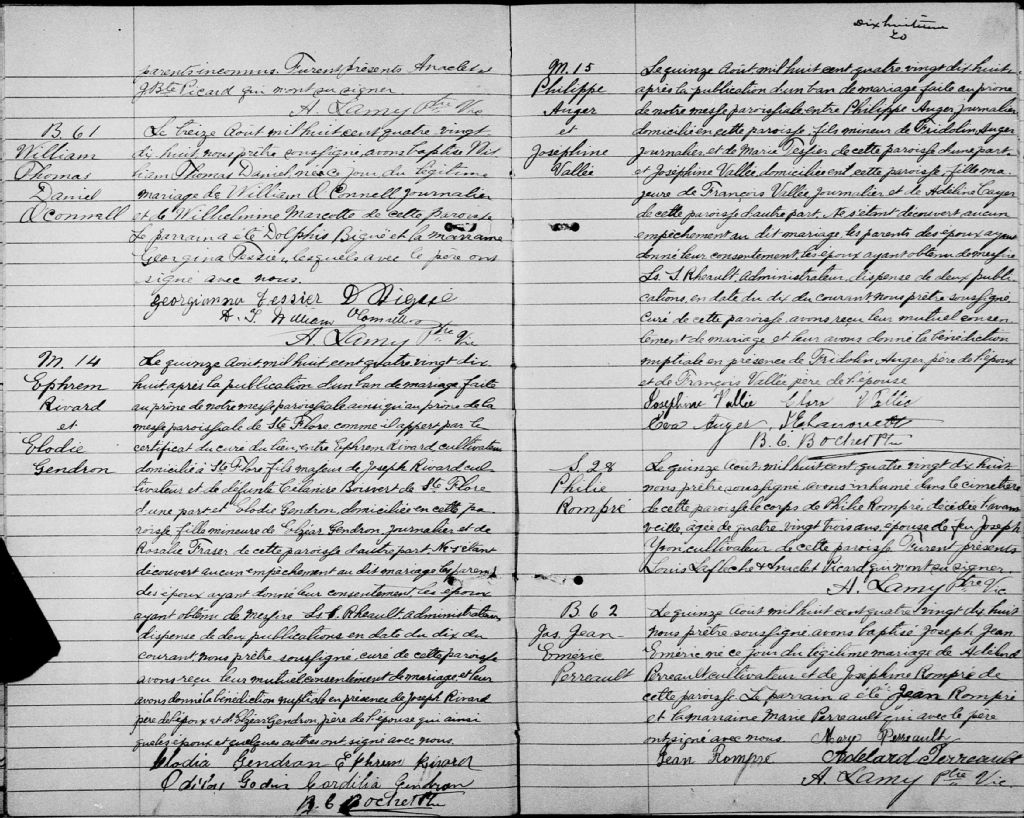 parents inconnus. Furent présents Anaclet &
J. Bte Picard qui n'ont su signer
A. Lamy Ptre Vic
B. 61
William
Thomas
Daniel
O'Connell
Le treize Aout mil huit cent quatre vingt
dix huit, nous prêtre soussigné, avons baptisé Wil
liam Thomas Daniel, né ce jour du légitime
mariage de William O'Connell journalier
et de Willelmine Marcotte de cette paroisse
Le parrain a été Dolphis Bigué et la marraine
Georgina Tessier, lesquels avec le père ont
signé avec nous.
Georgianna Tessier D Bigué
William O'Connell
A. Lamy Ptre Vic
M. 14
Ephrem
Rivard
et
Elodie
Gendron
Le quinze Aout mil huit cent quatre vingt dix
huit après la publication d'un ban de mariage faite
au prône de notre messe paroissiale ainsi qu'au prône de la
messe paroissiale de Ste Flore comme il appert par le
certificat du curé du lieu, entre Ephrem Rivard, cultivateur
domicilié à Ste Flore fils majeur de Joseph Rivard cul-
tivateur et de défunte Célanire Boisvert de Ste Flore
d'une part et Elodie Gendron, domiciliée en cette pa
roisse fille mineure de Elzéar Gendron journalier et de
Rosalie Fraser de cette paroisse d'autre part Ne s'étant
découvert aucun empêchement au dit mariage, les parents
des époux ayant donné leur consentement, les époux
ayant obtenu de Messire Ls S. Rheault, administrateur,
dispense de deux publications en date du dix du
courant, nous prêtre, soussigné, curé de cette paroisse
avons reçu leur mutuel consentement de mariage et leur
avons donné la bénédiction nuptiale en présence de Joseph Rivard
père de l'époux et d'Elzéar Gendron père de l'épouse qui ainsi
que les époux et quelques autres ont signé avec nous.
Elodia Gendron Ephrem Rivard
Godin Cordilia Gendron
B. C. Bochet Ptre
Dix huitième
20
M. 15
Philippe
Auger
et
Joséphine
Vallée
Le quinze Aout mil huit cent quatre vingt dix huit
après la publication d'un ban de mariage faite au prône
de notre messe paroissiale, entre Philippe Auger journalier
domicilié en cette paroisse, fils mineur de Fridolin Auger
journalier, et de Marie Tessier de cette paroisse d'une part
et Joséphine Vallée domiciliée en cette paroisse, fille ma-
jeure de François Vallée journalier et de Adéline
de cette paroisse d'autre part. Ne s'étant découvert aucun
empêchement au dit mariage, les parents des époux ayant
donné leur consentement, les époux ayant obtenu de messire
Ls S Rheault, Administrateur, dispense de deux publi
cations, en date du dix du courant nous prêtre soussigné
curé de cette paroisse, avons reçu leur mutuel consen-
tement de mariage et leur avons donné la bénédiction
nuptiale en présence de Fridolin Auger, père de l'époux
et de François Vallée père de l'épouse
Josephine Vallée Clara Vallée
Eva Auger
B. C. Bochet Ptre
S. 28
Philie
Rompré
Le quinze Aout mil huit cent quatre vingt dix huit
nous prêtre soussigné avons inhumé dans le cimetière
de cette paroisse le corps de Philie Rompré, décédée l'avant
veille, agée de quatre vingt trois ans, épouse de feu Joseph
Yvon cultivateur de cette paroisse. Furent présents
Louis Lafleche & Anaclet Picard qui n'ont su signer.
A. Lamy Ptre Vic
B 62
Jos. Jean
Eméric
Perreault
Le quinze Aout mil huit cent quatre vingt dix huit
nous prêtre soussigné avons baptisé Joseph Jean
Eméric né ce jour du légitime mariage de Adélard
Perreault cultivateur et de Joséphine Rompré de
cette paroisse. Le parrain a été Jean Rompré
et la marraine Marie Perreault qui avec le père
ont signé avec nous. Mary Perreault
Jean Rompré Adélard Perreault
A. Lamy Ptre Vic.